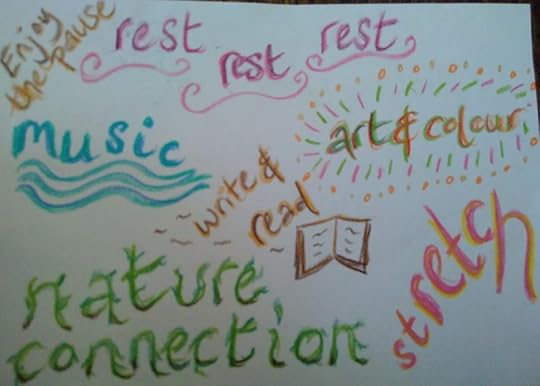 Enjoy
the pause
rest
rest
rest
music
art & colour
write &
read
nature
connection
stretch